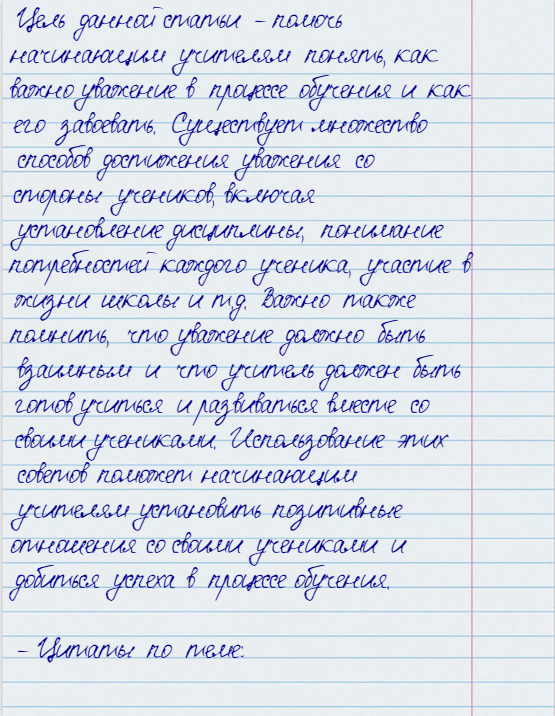 Цель данной статьи - помочь
начинающим учителям понять, как
важно уважение в процессе обучения и как
его завоевать. Существует множество
способов достижения уважения со
стороны учеников, включая
установление дисциплины, понимание
потребностей каждого ученика, участие в
жизни школы и т.д. Важно также
помнить, что уважение должно быть
взаимным и что учитель должен быть
готов учиться и развиваться вместе со
своими учениками. Использование этих
советов поможет начинающим
учителям установить позитивные
отношения со своими учениками и
добиться успеха в процессе обучения.
- Цитаты по теме: